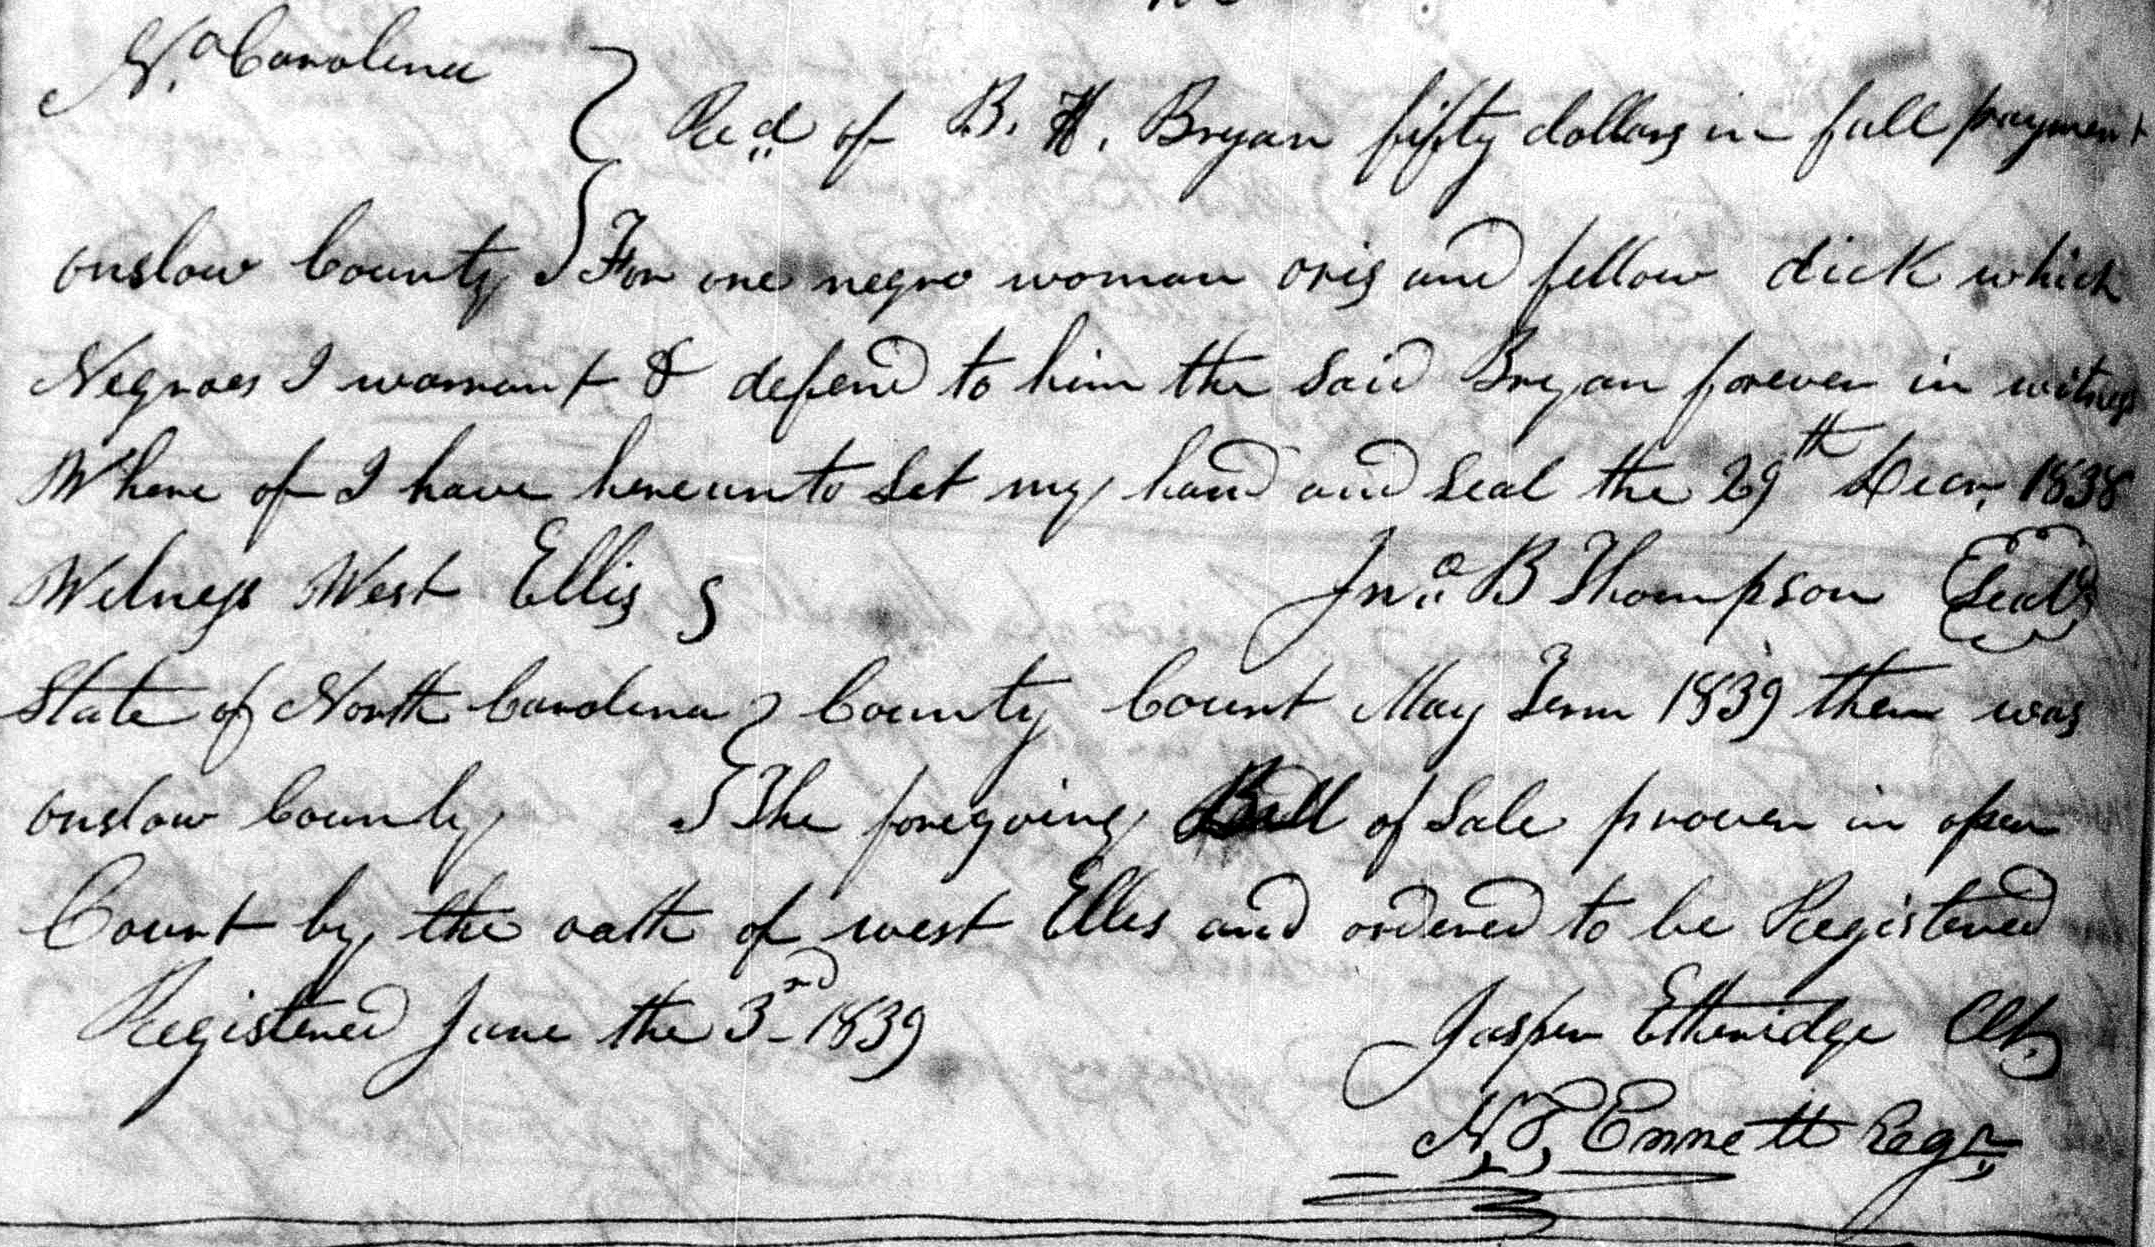 No. Carolina
Recd of B. H. Bryan fifty dollars in full payment
onslow County For one negro woman oris and fellow dick which
Negroes I warrant & defend to him the said Bryan forever in witness
Where of I have hereunto Set my hand and Seal the 29th Decr. 1838
Witness West Ellis Jno. B Thompson (Seal)
State of North Carolina County Court May Term 1839 then was
onslow County The foregoing Bill of Sale proven in open
Court by the oath of west Ellis and ordered to be Registered
Registered June the 3rd 1839 Jasper Etheridge Clk.
Emmett Regr.